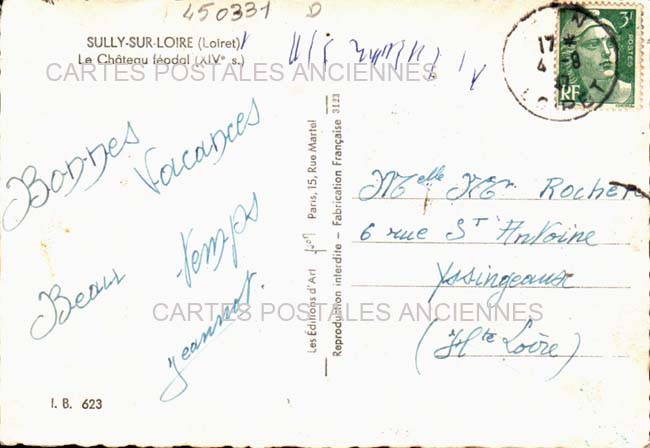 450331 D
SULLY-SUR-LOIRE (Loiret)
Le Château féodal (XIVe s.)
CARTES POSTALES ANCIENNES
Bonnes Vacances
Beau Temps
Jeannot.
I. B. 623
Les Éditions d'Art Paris, 15, Rue Martel
Reproduction interdite – Fabrication Française 3123
3F
POSTES
RF
17 *
4 -8
LOIRET
Melle Rochet
6 rue St Antoine
Yssingeaux
(Hte Loire)
CARTES POSTALES ANCIENNES